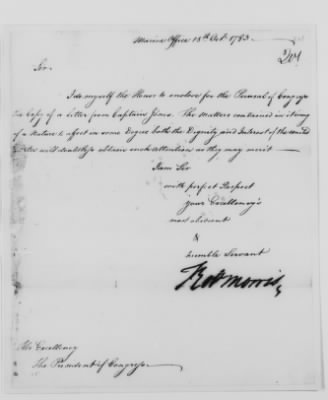 Marine Office 18th Octr. 1783
204
Sir.
I do myself the Honor to enclose for the Perusal of Congress
the Copy of a Letter from Captain Jones. The Matters contained in it
of a Nature to affect in some Degree both the Dignity and Interest of the
will doubtless obtain such Attention as they may merit —
I am Sir
with perfect Respect
your Excellency's
most obedient
&
humble Servant
Robt Morris
His Excellency
The President of Congress